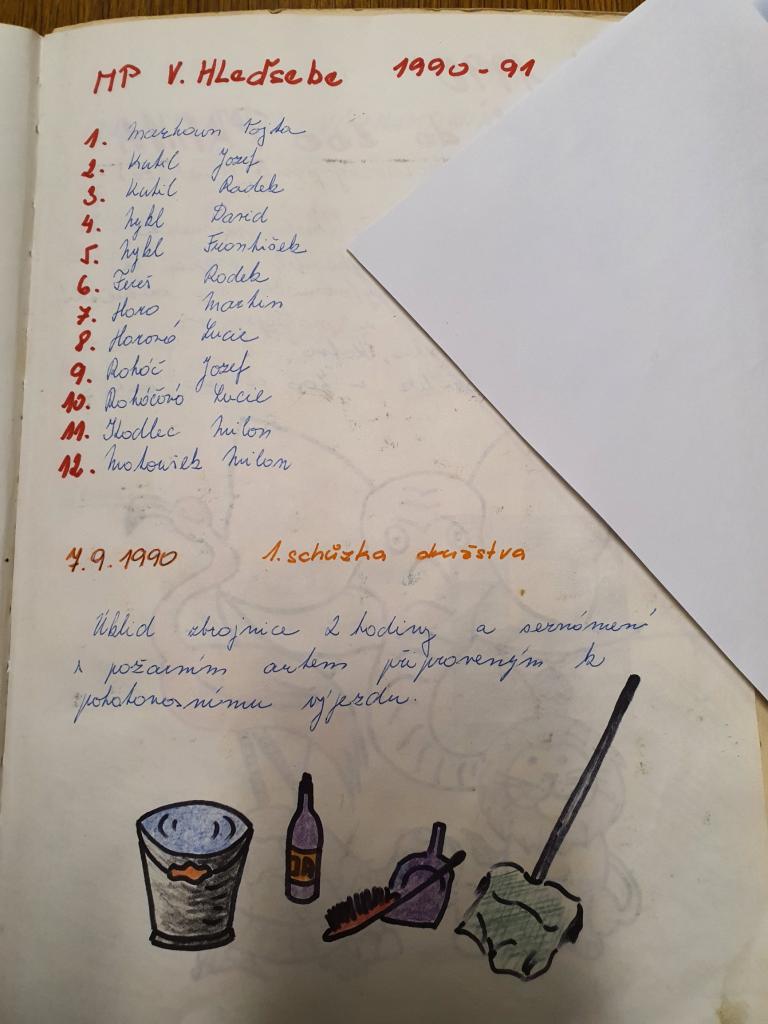 MP V. Hleďsebe 1990-91
1. Markown Vojta
2. Kutil Jozef
3. Kutil Radek
4. Nykl David
5. Nykl František
6. Fereš Radek
7. Hora Martin
8. Horová Lucie
9. Roháč Jozef
10. Roháčová Lucie
11. Kadlec Milon
12. Matoušek Milon
7.9.1990 1. schůzka družstva
Úklid zbrojnice 2 hodiny a seznámení
s požarním autem připraveným k
pohotovosnímu výjezdu.
JAR